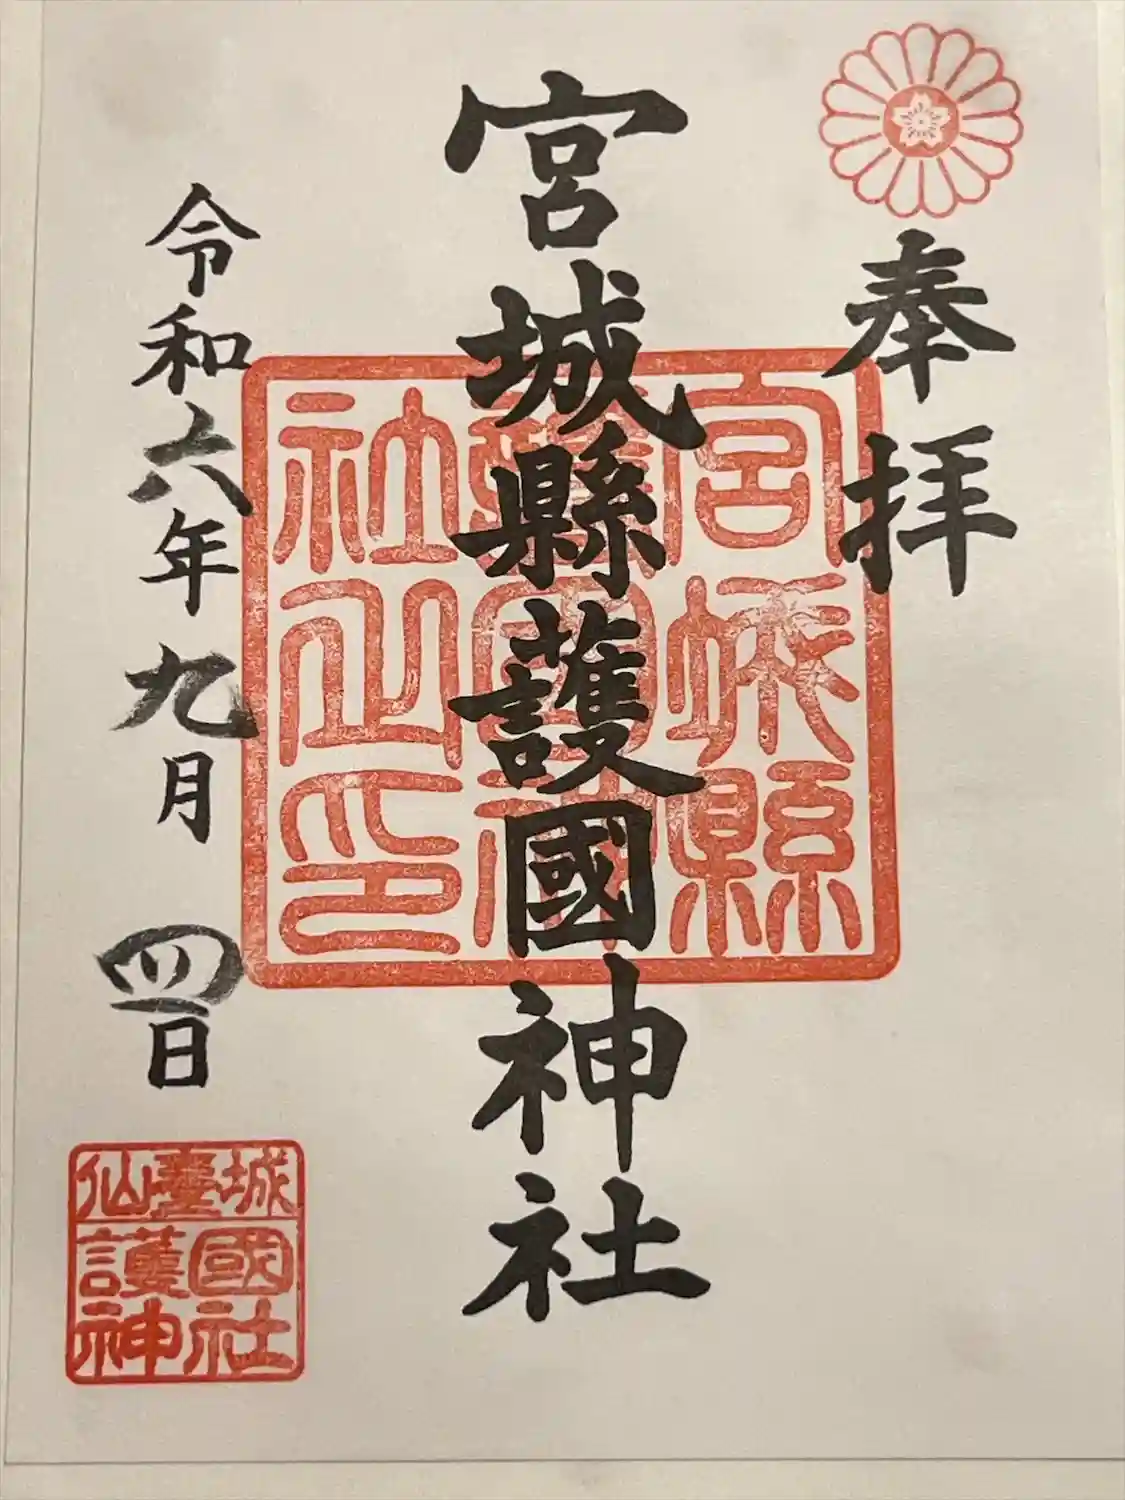 奉拝
宮城縣護國神社
宮城縣
護國神
社之印
令和六年九月四日
仙臺城
護國
神社